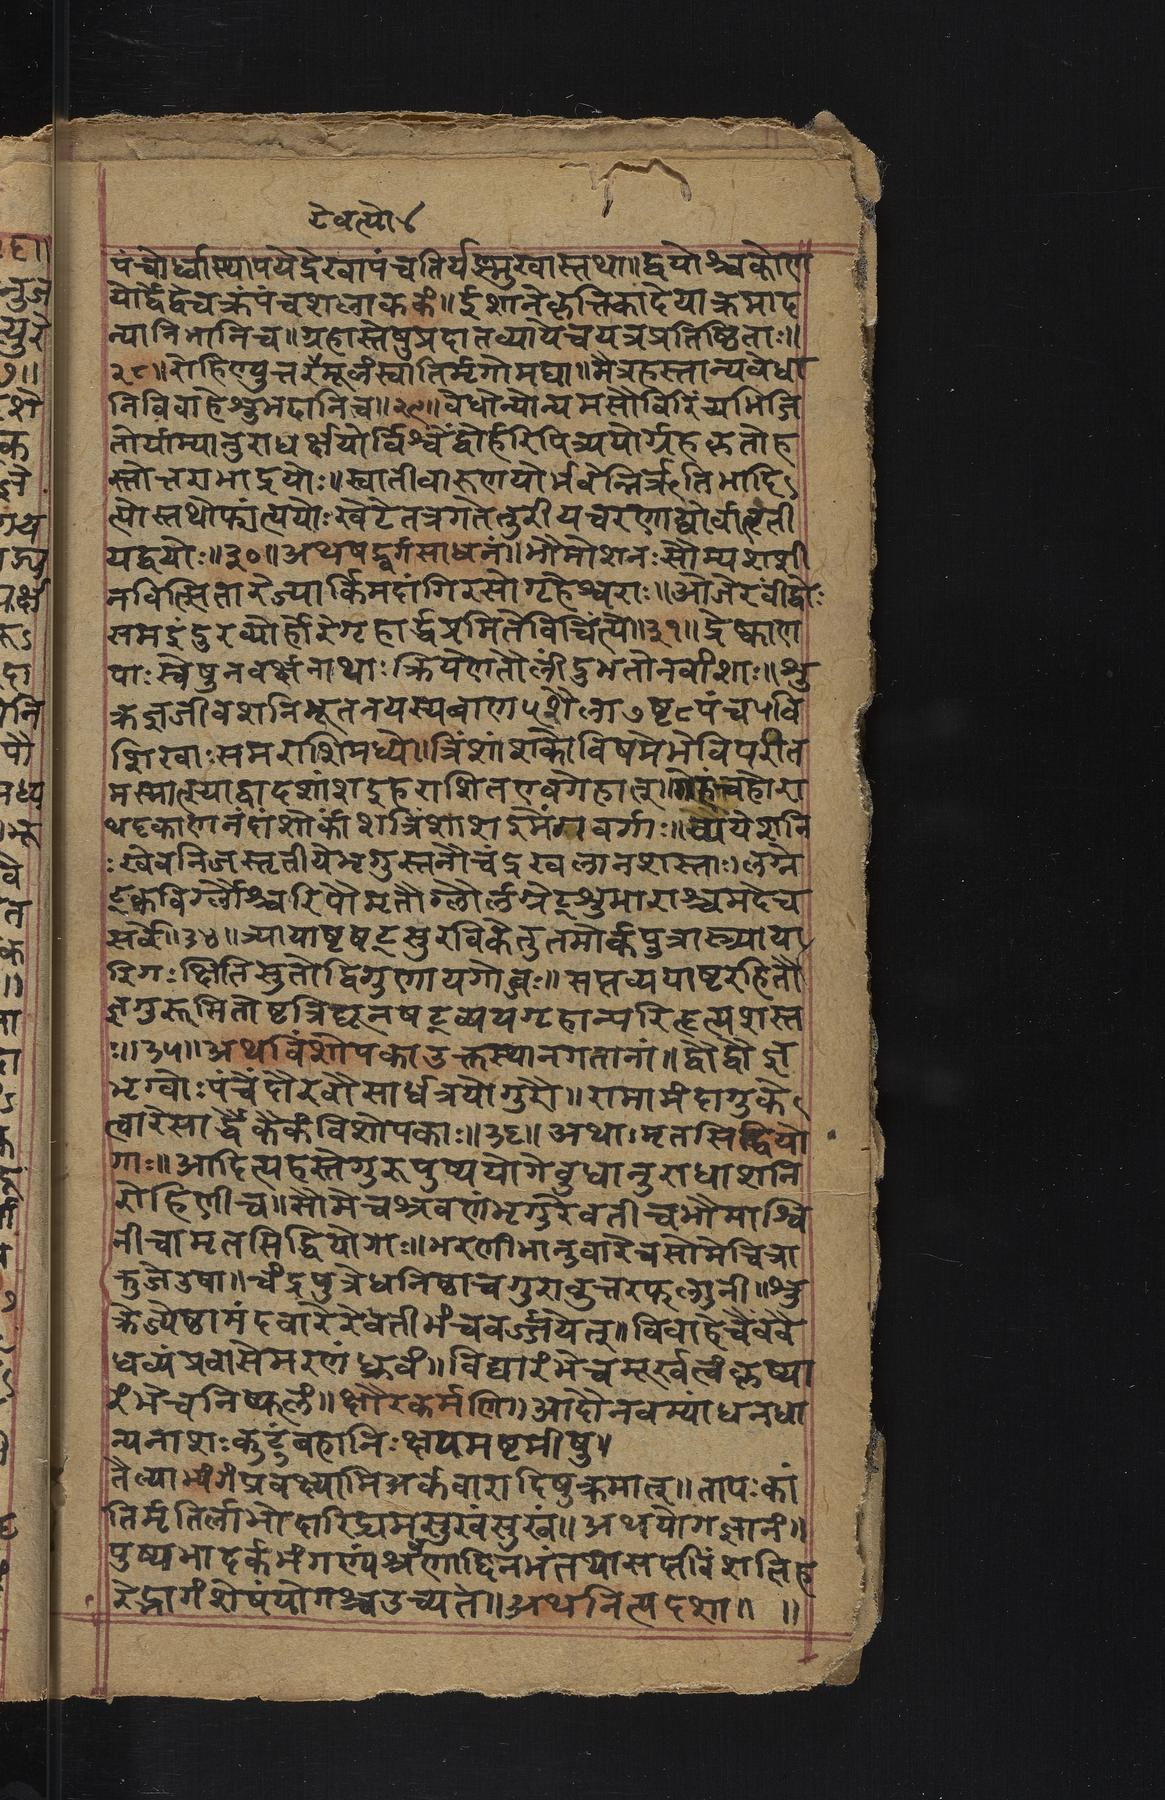 टेवत्यो४
पंचोर्ध्वास्थापयेद्रेखापंचतिर्यङ्मुखास्तथा॥द्वयोश्चकोण
योर्द्वेद्वेचक्रंपंचशलाककं॥ईशानेकृत्तिकांदेयाक्रमाद
न्यानिभानिच॥ग्रहास्तेषुप्रदातव्यायेचयत्रप्रतिष्ठिताः॥
२८॥रोहिण्युत्तररैमूलंस्वातिर्मृगोमघा॥मैत्रहस्तान्यवेधा
निविवाहेशुभदानिच॥२९॥वेधोन्योन्यमसौविरिंच्यभिजि
तोर्याम्यानुराधर्क्षयोर्विश्वेंद्वोर्हरिपित्र्ययोर्ग्रहकृतोह
स्तोत्तराभाद्रयोः॥स्वातीवारुणयोर्भवेन्निर्ऋतिभादि
त्योस्तथोफांत्ययोःखेटेतत्रगतेतुरीयचरणाद्योर्वातृती
यद्वयोः॥३०॥अथषद्वर्गसाधनं॥भौमोशनःसौम्यशशी
नवित्सितारेज्यार्किमंदांगिरसोगृहेश्वराः॥ओजेरवींद्वोः
समइंदुरव्योर्होरेगृहार्द्धप्रमितेविचिंत्ये॥३१॥द्रेष्काण
पाःस्वेषुनवर्क्षनाथाःक्रियेणतौलींदुभतोनवांशाः॥शु
क्रज्ञजीवशनिभूतनयस्यबाण५शैला७ष्ट८पंच५वि
शिखाःसमराशिमध्ये॥त्रिंशांशकोविषमेभेविपरीत
मस्मात्स्याद्वादशांशइहराशितएवगेहात्॥गेहंचहोरा
थदृकाणनंदांशोर्काशत्रिंशांशइमेषवर्गाः॥व्ययेशनि
ःखेवनिजस्तृतीयेभृगुस्तनौचंद्रखलानशस्ताः॥लग्ने
ट्कविर्ग्लौश्चरिपौमृतौग्लौर्लग्नेट्शुभाराश्चमदेच
सर्वे॥३४॥त्र्यायाष्टषट्सुरविकेतुतमोर्कपुत्रास्त्र्याया
रिगःक्षितिसुतोद्विगुणायगोब्जः॥सप्तव्ययाष्टरहितौ
ज्ञगुरूमितोष्टत्रिद्यूनषट्व्ययगृहान्परिहृत्यशस्त
ः॥३५॥अथविंशोपकाउक्तस्थानगतानां॥द्वौद्वौज्ञ
भृग्वोःपंचेंदौरवौसार्धत्रयोगुरौ॥रामामंदागुके
त्वारेसार्द्धैकैकंविशोपकाः॥३६॥अथामृतसिद्धियो
गाः॥आदित्यहस्तेगुरुपुष्ययोगेबुधानुराधाशनि
रोहिणीच॥सोमेचश्रवणंभृगुरेवतीचभौमाश्वि
नीचामृतसिद्धियोगाः॥भरणीभानुवारेचसोमेचित्रा
कुजेउषा॥चंद्रपुत्रेधनिष्ठाचगुरावुत्तरफल्गुनी॥शु
क्रेज्येष्ठामंदवारेरेवतीभंचवर्ज्जयेत्॥विवाहेचैववै
धव्यंप्रवासेमरणंध्रुवं॥विद्यारंभेचमूर्खत्वंकृष्या
रंभेचनिष्फलं॥क्षौरकर्मणि॥आदौनवम्यांधनधा
न्यनाशःकुटुंबहानिःक्षयमष्टमीषु।
तैल्याभ्यंगंप्रवक्ष्यामिअर्कवारादिषुक्रमात्॥तापःकां
तिर्मृतिर्लाभोदारिद्र्यमसुखंसुखं॥अथयोगज्ञानं॥
पुष्यभादर्कभंगण्यंश्रवणाद्दिनभंतथासप्तविंशतिह
रेद्भागंशेषंयोगश्चउच्यते॥अथनित्यदशा॥॥